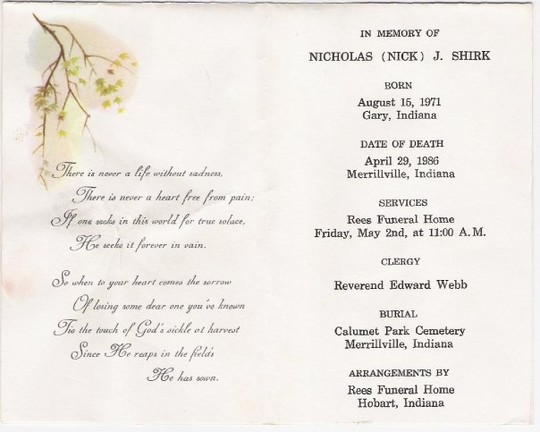 There is never a life without sadness,
There is never a heart free from pain;
If one seeks in this world for true solace,
He seeks it forever in vain.
So when to your heart comes the sorrow
Of losing some dear one you've known
'Tis the touch of God's sickle at harvest
Since He reaps in the fields
He has sown.
IN MEMORY OF
NICHOLAS (NICK) J. SHIRK
BORN
August 15, 1971
Gary, Indiana
DATE OF DEATH
April 29, 1986
Merrillville, Indiana
SERVICES
Rees Funeral Home
Friday, May 2nd, at 11:00 A.M.
CLERGY
Reverend Edward Webb
BURIAL
Calumet Park Cemetery
Merrillville, Indiana
ARRANGEMENTS BY
Rees Funeral Home
Hobart, Indiana